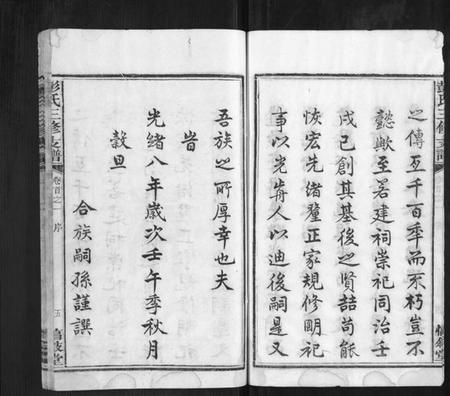 彭氏三修支譜
之傳亙千百年而不朽豈不
懿歟至若建祠崇祀同治壬
戌已創其基後之賢喆茍能
恢宏先緒釐正家規修明祀
事以光前人以迪後嗣是又
吾族之所厚幸也夫
皆
光緒八年歲次壬午季秋月
穀旦
合族嗣孫謹譔
彭氏三修支譜
卷首之一
序
五